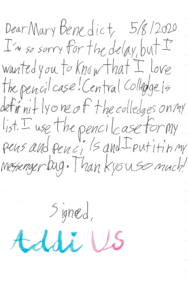 Dear Mary Benedict, 5/8/2020
I'm so sorry for the delay, but I
wanted you to know that I love
the pencil case! Central Colledge is
definitly one of the colledges on my
list. I use the pencil case for my
pens and pencils and I put it in my
messenger bag. Thank you so much!
Signed,
Addi VS